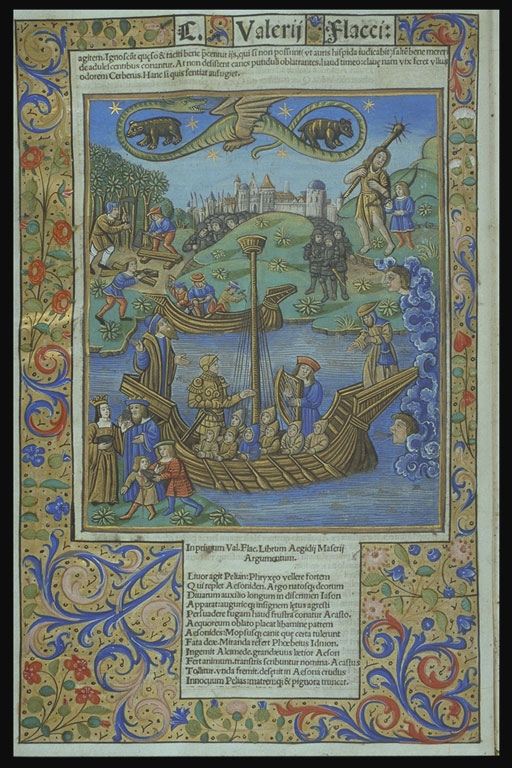 C. Valerij Flacci:
agitem. Ignoscēt quęso & taciti bene p̄centur ijs, qui si non possunt (vt auris hispida iudicabit) saltē bene merer
de adulescentibus conantur. At non desistent canes putiduli oblatrantes. haud timeo: nam vix feret
odorem Cerberus. Hanc si quis sentiat aufugiet.
In primum Val. Flac. Librum Aegidij Maserij
Argumentum.
Liuor agit Pelian: Phryxęo vellere fortem
Qui replet Aesoniden. Argo natosq; deorum
Diuarum auxilio longum in discrimen Iason
Apparat: augurioq; insignem lętus agresti
Persuadere fugam haud frustra conatur Acasto.
Aequoreum oblato placat libamine patrem
Aesonides: Mopsusq; canit quę certa tulerunt
Fata deę. Miranda refert Phœbeius Idmon.
Ingemit Alcimede. grandęuus lętior Aeson
Fert animum. transtris scribuntur nomina. Acastus
Tollitur. vnda fremit. desęuit in Aesona crudus
Innocuum Pelias: matremq; & pignora truncat.